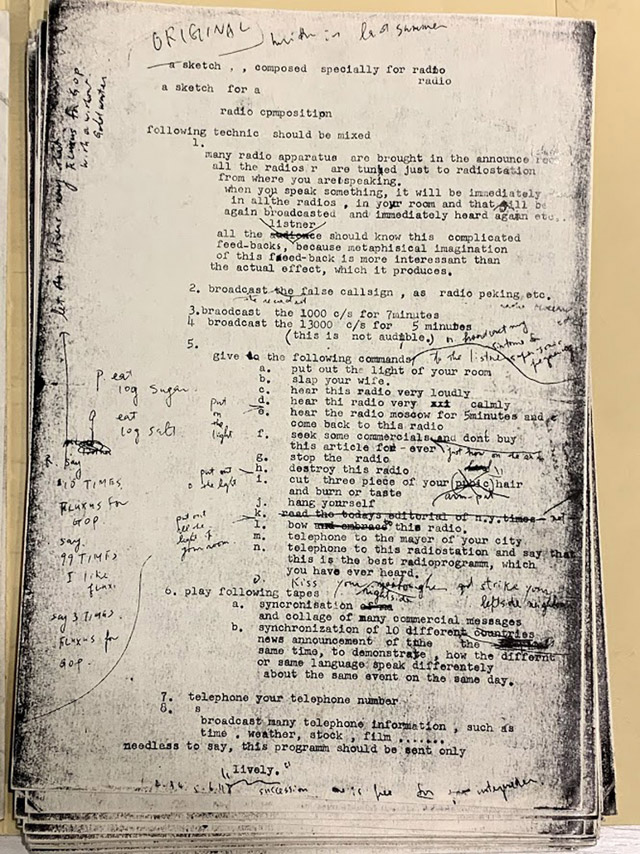 ORIGINAL) last summer
a sketch , , composed specially for radio
radio
a sketch for a
radio cpmposition
following technic should be mixed
1.
many radio apparatus are brought in the announce
all the radios r are tunked just to radiostation
from where you are speaking.
when you speak something, it will be immediately
in allthe radios , in your room and that will be
again broadcasted and immediately heard again etc,.
listner
all the audience should know this complicated
feed-backs, because metaphisical imagination
of this feed-back is more interessant than
the actual effect, which it produces.
2. broadcast the false callsign , as radio peking etc.
3.braodcast the 1000 c/s for 7minutes
4 broadcast the 13000 c/s for 5 minutes
(this is not audible.)
5.
give to the following commands, to the listner
a. put out the light of your room
b. slap your wife.
c. hear this radio very loudly
d. hear thi radio very xxi calmly
e. hear the radio moscow for 5minutes and
come back to this radio
f. seek some commercials and dont buy
this article for - ever
g. stop the radio
h. destroy this radio
i. cut three piece of your (pubic) hair
arm-pit
and burn or taste
j. hang yourself
k. read the todays editorial of n.y.times
l. bow and embrace this radio.
m. telephone to the mayer of your city
n. telephone to this radiostation and say that
this is the best radioprogramm, which
you have ever heard.
o. Kiss your rightside strike your
leftside
6. play following tapes
a. syncronisation
and collage of many commercial messages
b. synchronization of 10 different countries
news announcement of the the
same time, to demonstrate , how the differnt
or same language speak differetely
about the same event on the same day.
7. telephone your telephone number
8. s
broadcast many telephone information , such as
time , weather, stock , film .......
needless to say, this programm should be sent only
"lively."
succession is free for
p. eat
log Sugar.
q eat
log Salt
put
on
the
light
put out
the light
put out
light of
your room.
say
10 TIMES
FLUXUS for
GOP
say
99 TIMES
I like
fluxus
say 3 TIMES
FLUXUS for
GOP.